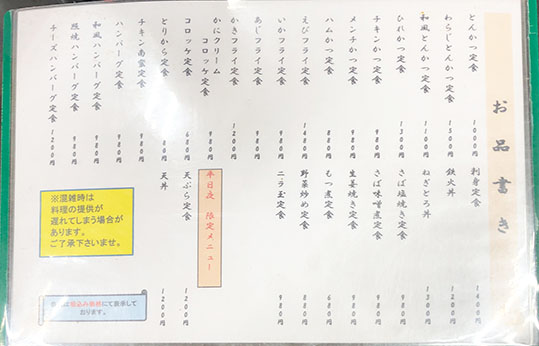 お品書き
とんかつ定食 1000円
わらじとんかつ定食 1500円
和風とんかつ定食 1100円
ひれかつ定食 1300円
チキンかつ定食 980円
メンチかつ定食 980円
ハムかつ定食 880円
えびフライ定食 1480円
いかフライ定食 980円
あじフライ定食 980円
かきフライ定食 1200円
かにクリーム
コロッケ定食 980円
コロッケ定食 680円
とりから定食 880円
チキン南蛮定食 980円
ハンバーグ定食 980円
和風ハンバーグ定食 980円
照焼ハンバーグ定食 980円
チーズハンバーグ定食 1200円
刺身定食 1400円
鉄火丼 1200円
ねぎとろ丼 1300円
さば塩焼き定食 980円
さば味噌煮定食 980円
生姜焼き定食 980円
もつ煮定食 680円
野菜炒め定食 880円
ニラ玉定食 980円
平日夜 限定メニュー
天ぷら定食 1200円
天丼 1200円
※混雑時は
料理の提供が
遅れてしまう場合が
あります。
ご了承下さいませ。
税込み価格にて表示して
おります。